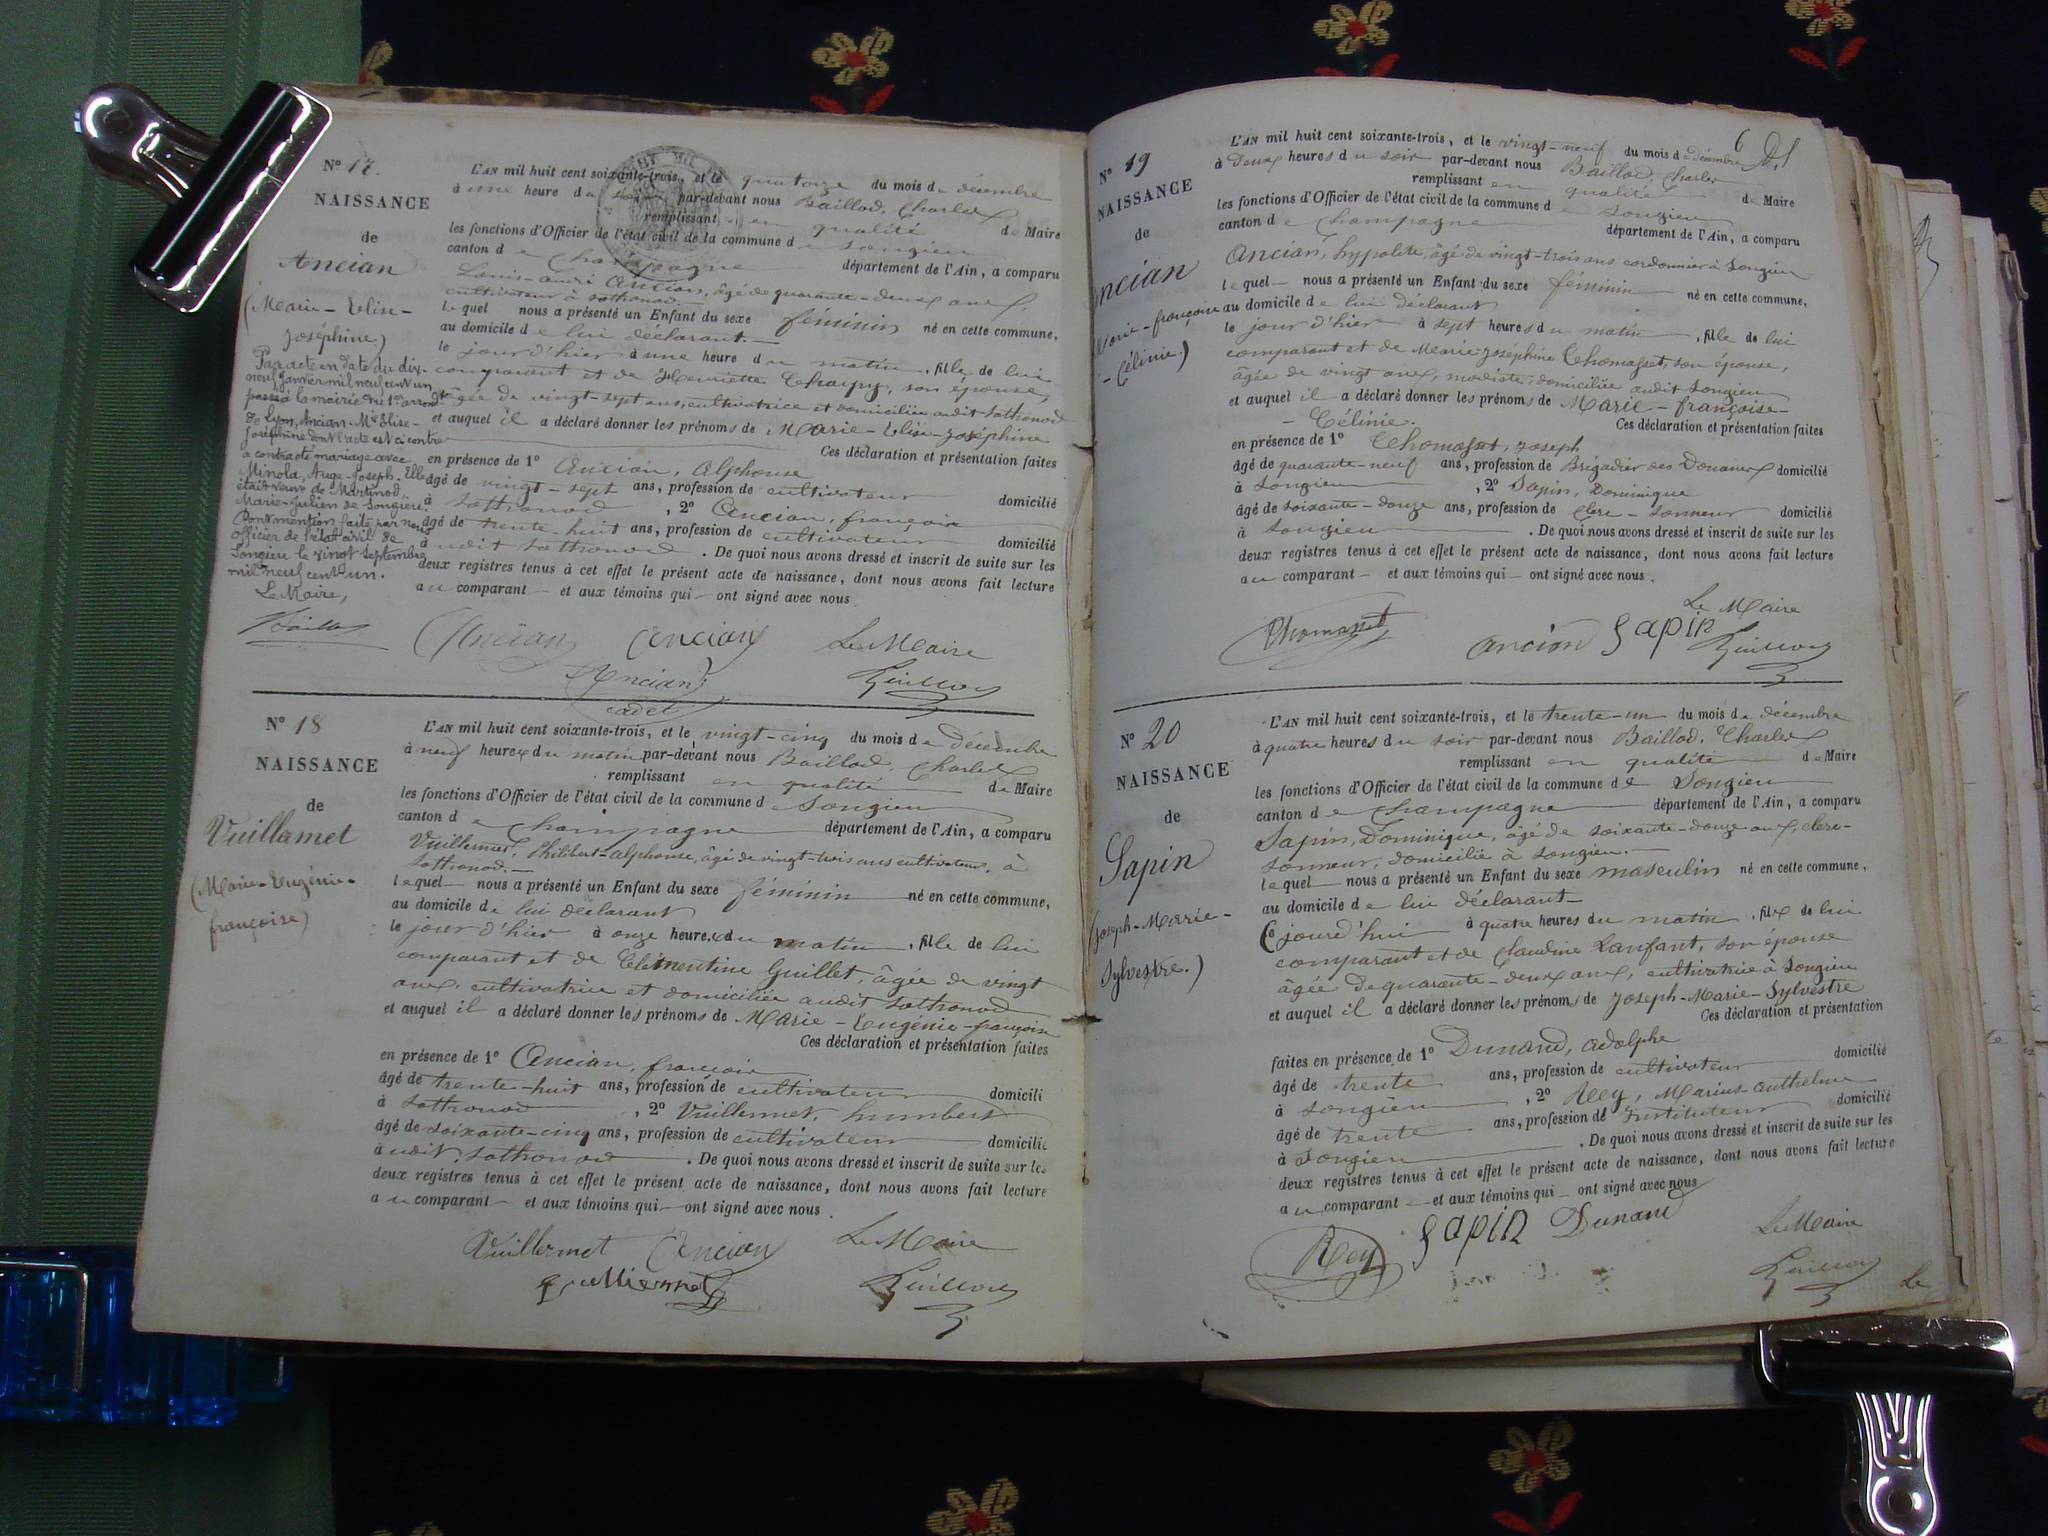 N° 17.
NAISSANCE
de
Ancian
(Marie-Elise-
Joséphine)
Par acte en date du dix-
neuf Janvier mil neuf cent un
passé à la mairie du 1er arrondt
de Lyon, Ancian Mie Elise-
Joséphine dont l'acte est ci contre
a contracté mariage avec
Minola, Ange-Joseph. Elle
était veuve de Martinod
Marie-Julien de Songieu.
Dont mention faite par nous
officier de l'état civil de
Songieu le vingt Septembre
mil neuf cent un.
Le Maire,
L'AN mil huit cent soixante-trois, et le quatorze du mois de décembre
à une heure du soir par-devant nous Baillod, Charles
remplissant en qualité de Maire
les fonctions d'Officier de l'état civil de la commune de Songieu
canton de Champagne département de l'Ain, a comparu
Louis-André Ancian, âgé de quarante-deux ans,
cultivateur à Sothonod.
lequel nous a présenté un Enfant du sexe féminin né en cette commune,
au domicile de lui déclarant.
le jour d'hier à une heure du matin, fille de lui
comparant et de Henriette Charpy, son épouse,
âgée de vingt-sept ans, cultivatrice et domiciliée audit Sothonod
et auquel il a déclaré donner les prénoms de Marie-Elise-Joséphine
Ces déclaration et présentation faites
en présence de 1° Ancian, Alphonse
âgé de vingt-sept ans, profession de cultivateur domicilié
à Sothonod, 2° Ancian, françois
âgé de trente-huit ans, profession de cultivateur domicilié
à udit Sothonod. De quoi nous avons dressé et inscrit de suite sur les
deux registres tenus à cet effet le présent acte de naissance, dont nous avons fait lecture
au comparant et aux témoins qui ont signé avec nous.
Ancian Ancian Le Maire
Ancian
cadet
N° 18
NAISSANCE
de
Vuillamet
(Marie-Eugénie-
françoise)
L'AN mil huit cent soixante-trois, et le vingt-cinq du mois de décembre
à neuf heures du matin par-devant nous Baillod, Charles
remplissant en qualité de Maire
les fonctions d'Officier de l'état civil de la commune de Songieu
canton de Champagne département de l'Ain, a comparu
Vuillermet, Philibert-Alphonse, âgé de vingt-trois ans cultivateur, à
Sothonod.
lequel nous a présenté un Enfant du sexe féminin né en cette commune,
au domicile de lui déclarant
le jour d'hier à onze heures du matin, fille de lui
comparant et de Clémentine Guillet, âgée de vingt
ans, cultivatrice et domiciliée audit Sothonod
et auquel il a déclaré donner les prénoms de Marie-Eugénie-françoise
Ces déclaration et présentation faites
en présence de 1° Ancian, françois
âgé de trente-huit ans, profession de cultivateur domicili
à Sothonod, 2° Vuillermet, humbert
âgé de soixante-cinq ans, profession de cultivateur domicilié
à udit Sothonod. De quoi nous avons dressé et inscrit de suite sur les
deux registres tenus à cet effet le présent acte de naissance, dont nous avons fait lecture
au comparant et aux témoins qui ont signé avec nous.
Vuillermet Ancian Le Maire
6
N° 19
NAISSANCE
de
ncian
Marie-françoise
-Célinie.)
L'AN mil huit cent soixante-trois, et le vingt-neuf du mois de décembre
à deux heures du soir par-devant nous Baillod, Charles
remplissant en qualité de Maire
les fonctions d'Officier de l'état civil de la commune de Songieu
canton de Champagne département de l'Ain, a comparu
Ancian, hypolite, âgé de vingt-trois ans cordonnier à Songieu
lequel nous a présenté un Enfant du sexe féminin né en cette commune,
au domicile de lui déclarant
le jour d'hier à sept heures du matin, fille de lui
comparant et de Marie-Joséphine Thomasset, son épouse,
âgée de vingt ans, modiste, domiciliée audit Songieu
et auquel il a déclaré donner les prénoms de Marie-françoise-
-Célinie. Ces déclaration et présentation faites
en présence de 1° Thomasset, Joseph
âgé de quarante-neuf ans, profession de Brigadier des Douanes domicilié
à Songieu, 2° Sapin, Dominique
âgé de soixante-douze ans, profession de clerc-sonneur domicilié
à Songieu. De quoi nous avons dressé et inscrit de suite sur les
deux registres tenus à cet effet le présent acte de naissance, dont nous avons fait lecture
au comparant et aux témoins qui ont signé avec nous.
Le Maire
Thomasset Ancian Sapin
N° 20
NAISSANCE
de
Sapin
(Joseph-Marie-
Sylvestre.)
L'AN mil huit cent soixante-trois, et le trente-un du mois de décembre
à quatre heures du soir par-devant nous Baillod, Charles
remplissant en qualité de Maire
les fonctions d'Officier de l'état civil de la commune de Songieu
canton de Champagne département de l'Ain, a comparu
Sapin, Dominique, âgé de soixante-douze ans, clerc-
sonneur, domicilié à Songieu.
lequel nous a présenté un Enfant du sexe masculin né en cette commune,
au domicile de lui déclarant
Ce jourd'hui à quatre heures du matin, fils de lui
comparant et de Claudine Lanfant, son épouse
âgée de quarante-deux ans, cultivatrice à Songieu
et auquel il a déclaré donner les prénoms de Joseph-Marie-Sylvestre
Ces déclaration et présentation
faites en présence de 1° Dunand, Adolphe
âgé de trente ans, profession de cultivateur domicilié
à Songieu, 2° Rey, Marius-Anthelme
âgé de trente ans, profession de Instituteur domicilié
à Songieu. De quoi nous avons dressé et inscrit de suite sur les
deux registres tenus à cet effet le présent acte de naissance, dont nous avons fait lecture
au comparant et aux témoins qui ont signé avec nous
Rey Sapin Dunand Le Maire
Le